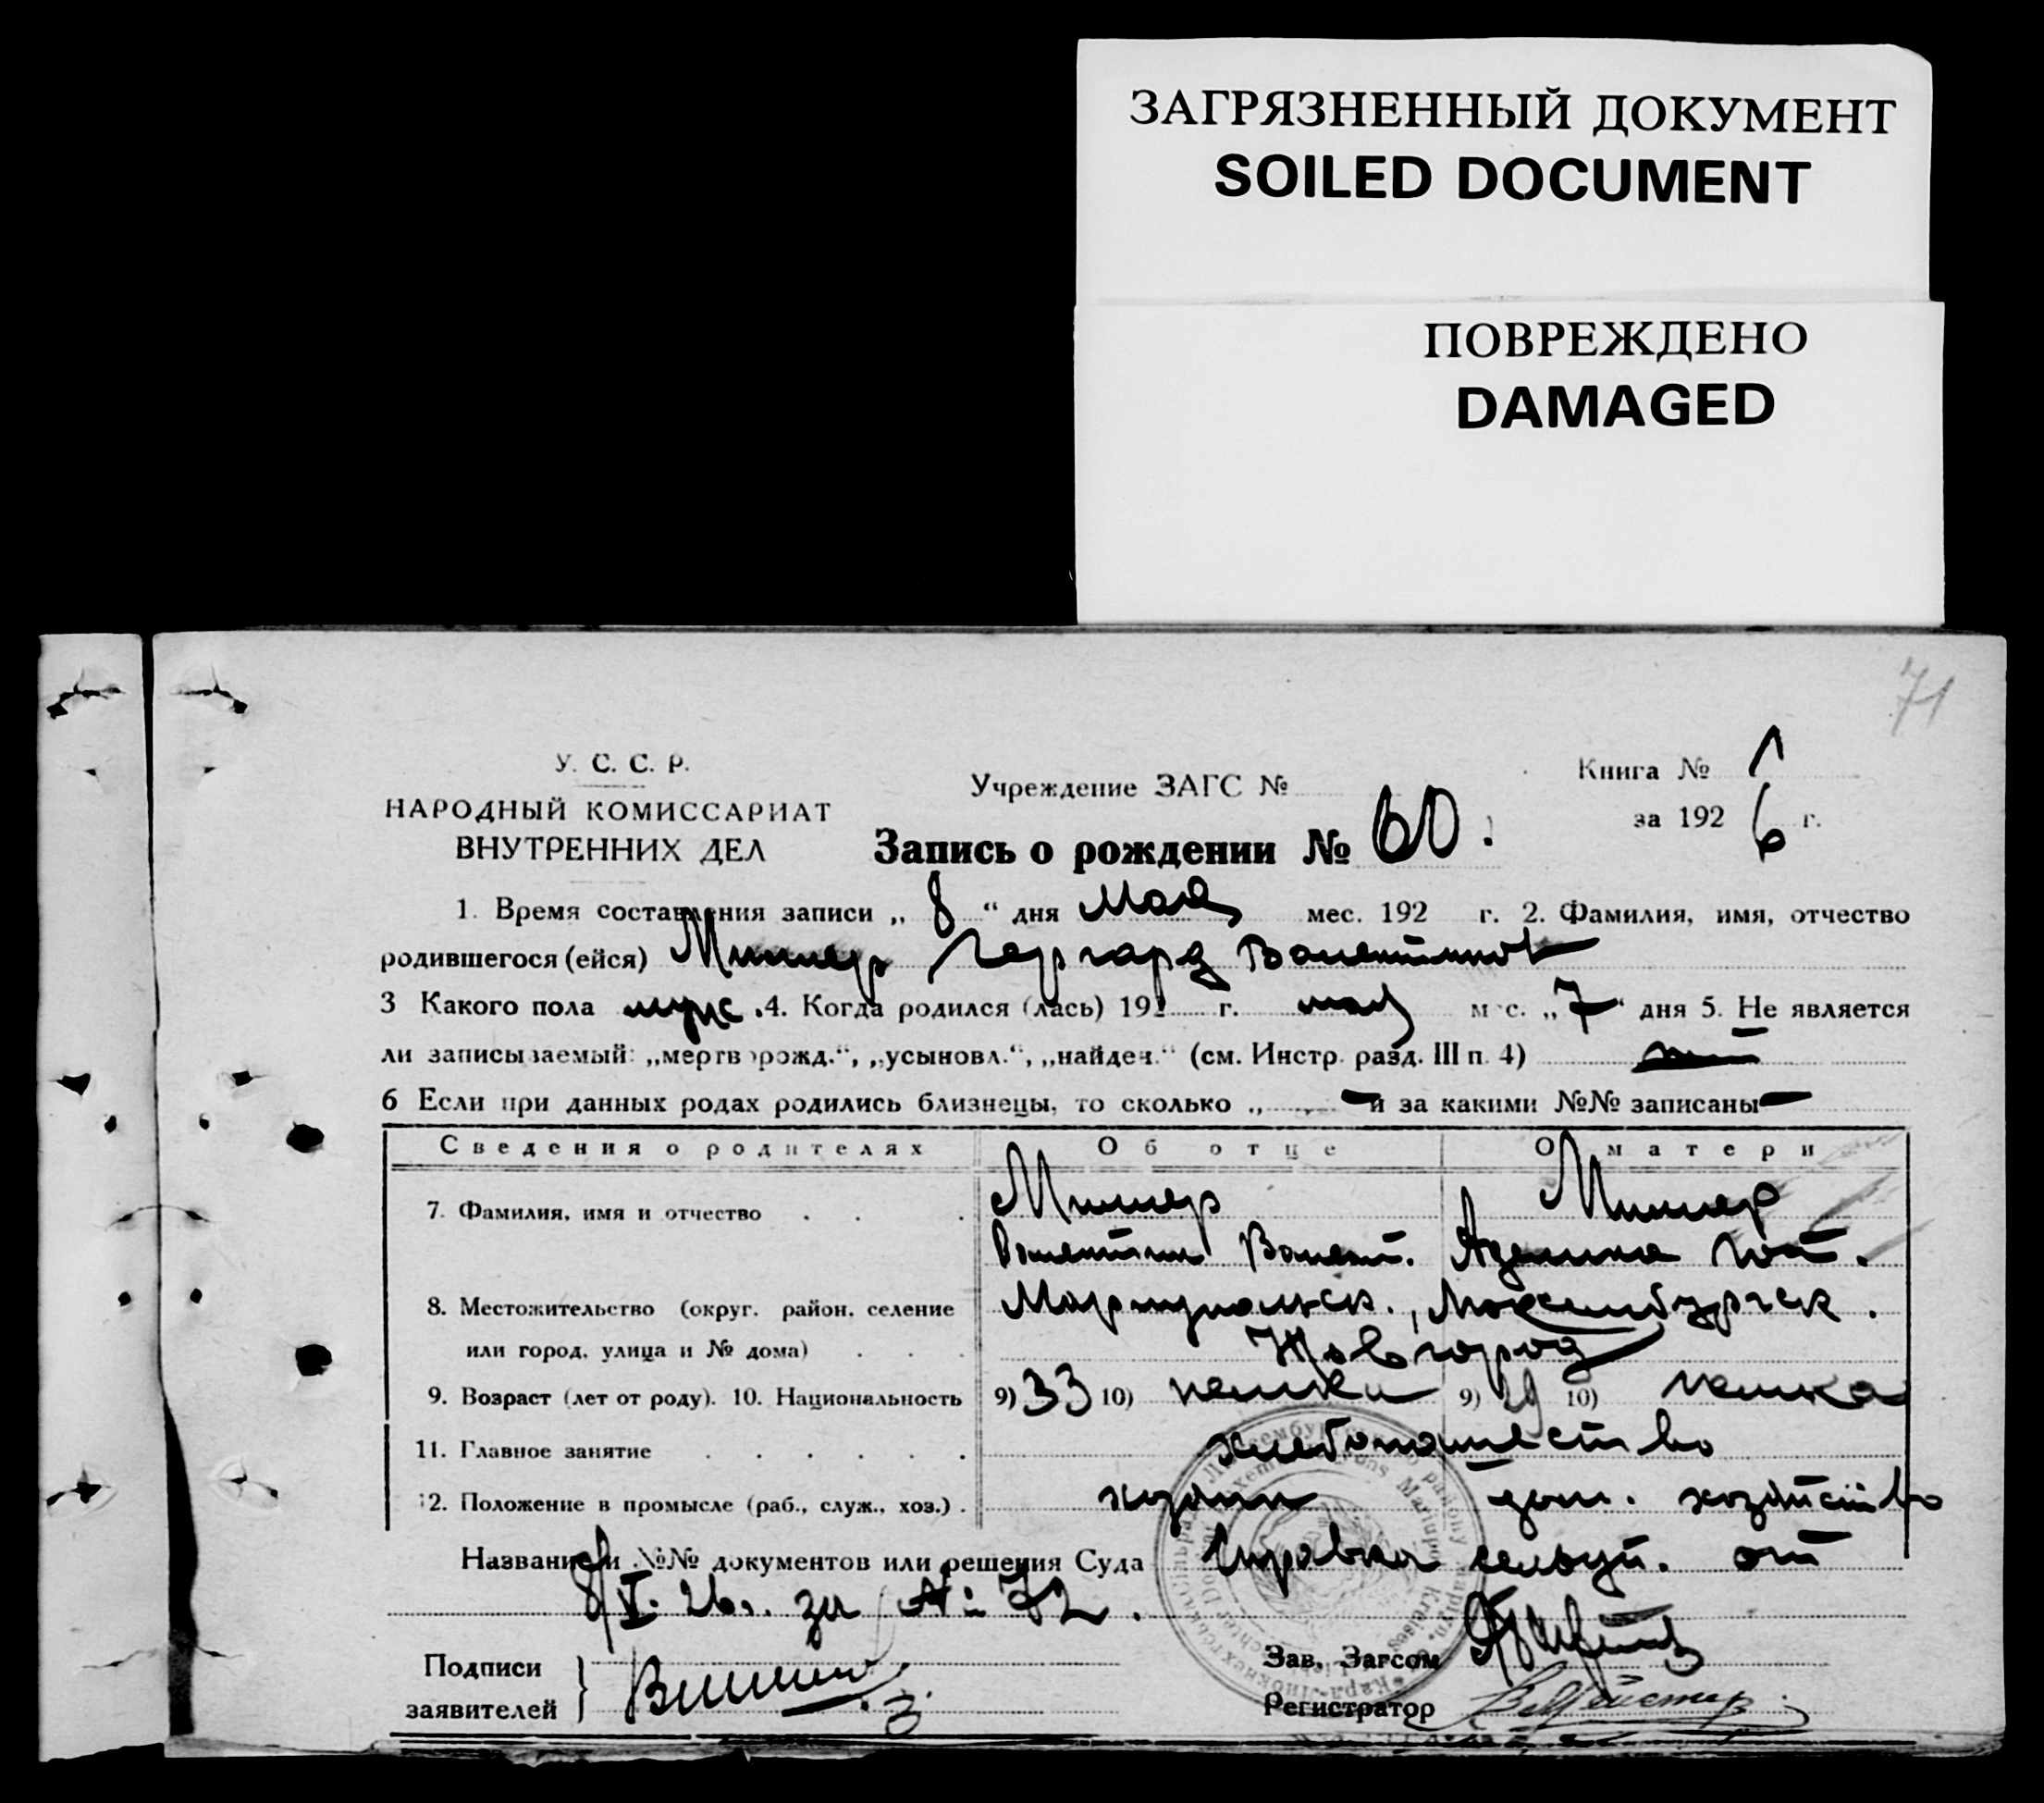 ЗАГРЯЗНЕННЫЙ ДОКУМЕНТ
SOILED DOCUMENT
ПОВРЕЖДЕНО
DAMAGED
71
У. С. С. Р.
НАРОДНЫЙ КОМИССАРИАТ
ВНУТРЕННИХ ДЕЛ
Учреждение ЗАГС №
Книга № 1
за 1926 г.
Запись о рождении № 60.
1. Время составления записи „ 8 “ дня Мая мес. 192 г. 2. Фамилия, имя, отчество
родившегося (ейся) Миллер Гергард Валентинов
3 Какого пола муж. 4. Когда родился (лась) 192 г. мая мес. „ 7 “ дня 5. Не является
ли записываемый: „мертворожд.“, „усыновл.“, „найден.“ (см. Инстр. разд. III п. 4)
6 Если при данных родах родились близнецы, то сколько „ — и за какими №№ записаны —
Сведения о родителях Об отце О матери
7. Фамилия, имя и отчество Миллер Миллер
Валентин Валент. Аделина
8. Местожительство (округ, район, селение Мариупольск., Люксембургск.
или город, улица и № дома)
9. Возраст (лет от роду). 10. Национальность 9) 33 10) немец 9) 29 10) немка
11. Главное занятие хлебопашество
12. Положение в промысле (раб., служ., хоз.) хозяин дом. хозяйство
Название и №№ документов или решения Суда Справка сельсов. от
8/V. 26. за № 72.
Подписи
заявителей
Зав. Загсом
Регистратор